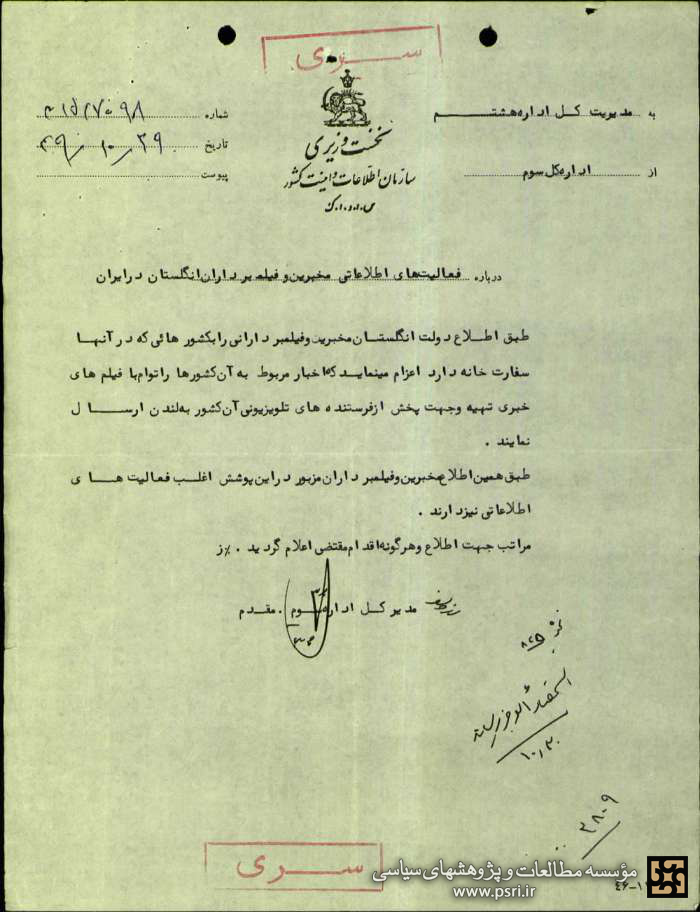 سری
به مدیریت کل اداره هشتم
از اداره کل سوم
نخست وزیری
سازمان اطلاعات و امنیت کشور
س.ا.و.ا.ک
شماره
تاریخ ۴۹/۱۰/۲۹
پیوست
درباره فعالیت‌های اطلاعاتی مخبرین و فیلمبرداران انگلستان در ایران
طبق اطلاع دولت انگلستان مخبرین و فیلمبردارانی را بکشور هائی که در آنها
سفارت خانه دارد اعزام مینماید که اخبار مربوط به آن کشورها را توام با فیلم های
خبری تهیه وجهت پخش از فرستنده های تلویزیونی آن کشور به لندن ارسال
نمایند .
طبق همین اطلاع مخبرین و فیلمبرداران مزبور در این پوشش اغلب فعالیت های
اطلاعاتی نیز دارند .
مراتب جهت اطلاع و هرگونه اقدام مقتضی اعلام گردید . %ز
مدیر کل اداره سوم . مقدم
۱۰/۳۰
۳۸۰۹
سری
مؤسسه مطالعات و پژوهشهای سیاسی
www.psri.ir